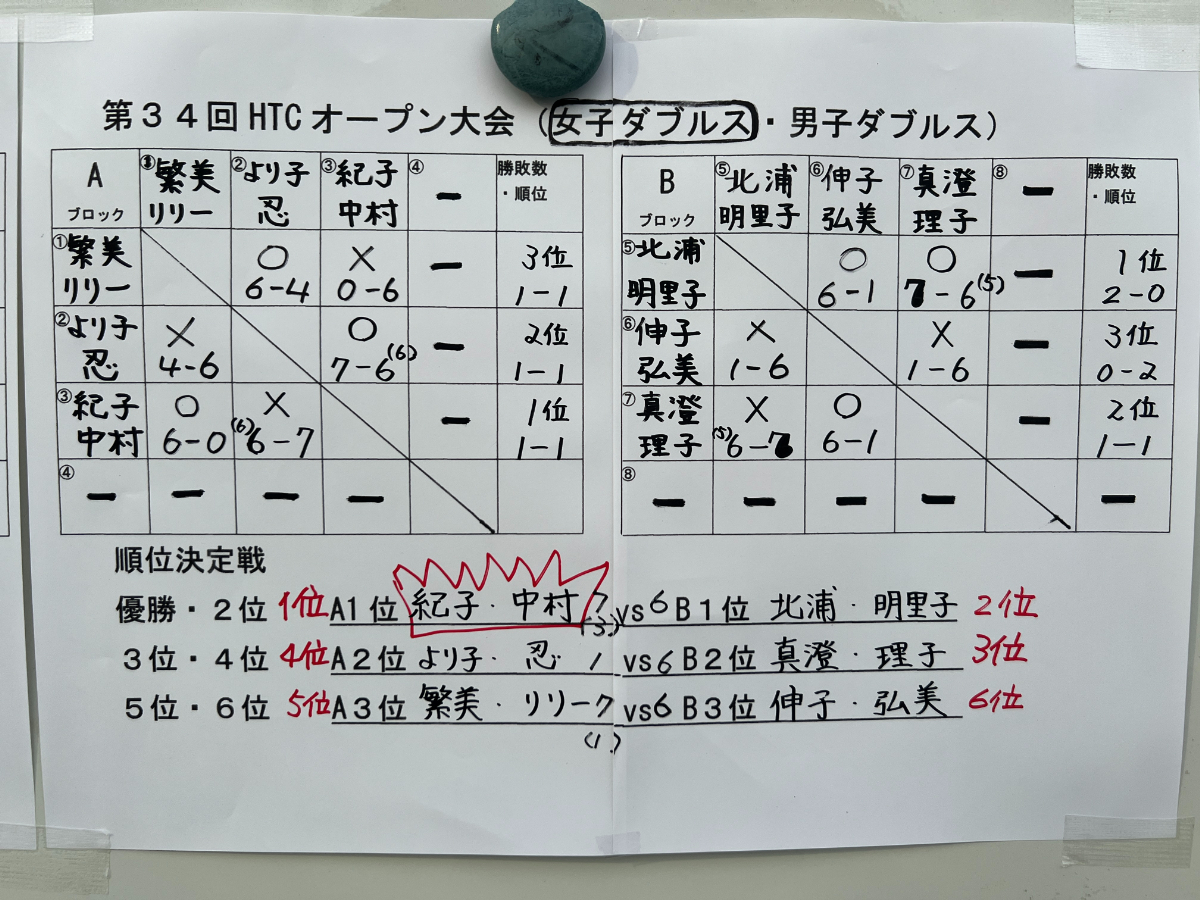 第34回 HTC オープン大会 (女子ダブルス・男子ダブルス)
A ブロック ①繁美 リリー ②より子 忍 ③紀子 中村 ④ー 勝敗数・順位
①繁美 リリー ○ 6-4 × 0-6 ー 3位 1-1
②より子 忍 × 4-6 ○ 7-6(6) ー 2位 1-1
③紀子 中村 ○ 6-0 × (6)6-7 ー 1位 1-1
④ー ー ー ー
B ブロック ⑤北浦 明里子 ⑥伸子 弘美 ⑦真澄 理子 ⑧ー 勝敗数・順位
⑤北浦 明里子 ○ 6-1 ○ 7-6(5) ー 1位 2-0
⑥伸子 弘美 × 1-6 × 1-6 ー 3位 0-2
⑦真澄 理子 × (5)6-7 ○ 6-1 ー 2位 1-1
⑧ー ー ー ー ー
順位決定戦
優勝・2位 1位 A1位 紀子・中村 7(3) vs 6 B1位 北浦・明里子 2位
3位・4位 4位 A2位 より子・忍 1 vs 6 B2位 真澄・理子 3位
5位・6位 5位 A3位 繁美・リリー 7 vs 6 B3位 伸子・弘美 6位
(1)